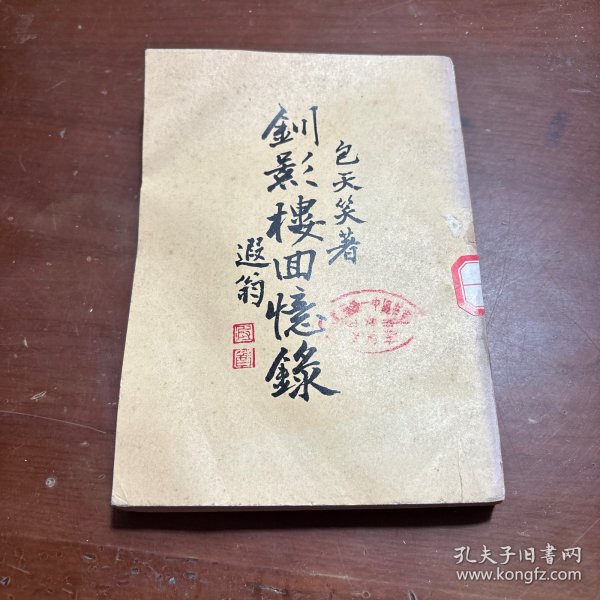 包天笑著
釧影樓回憶錄
遐翁
孔夫子旧書网
www.kongfz.com